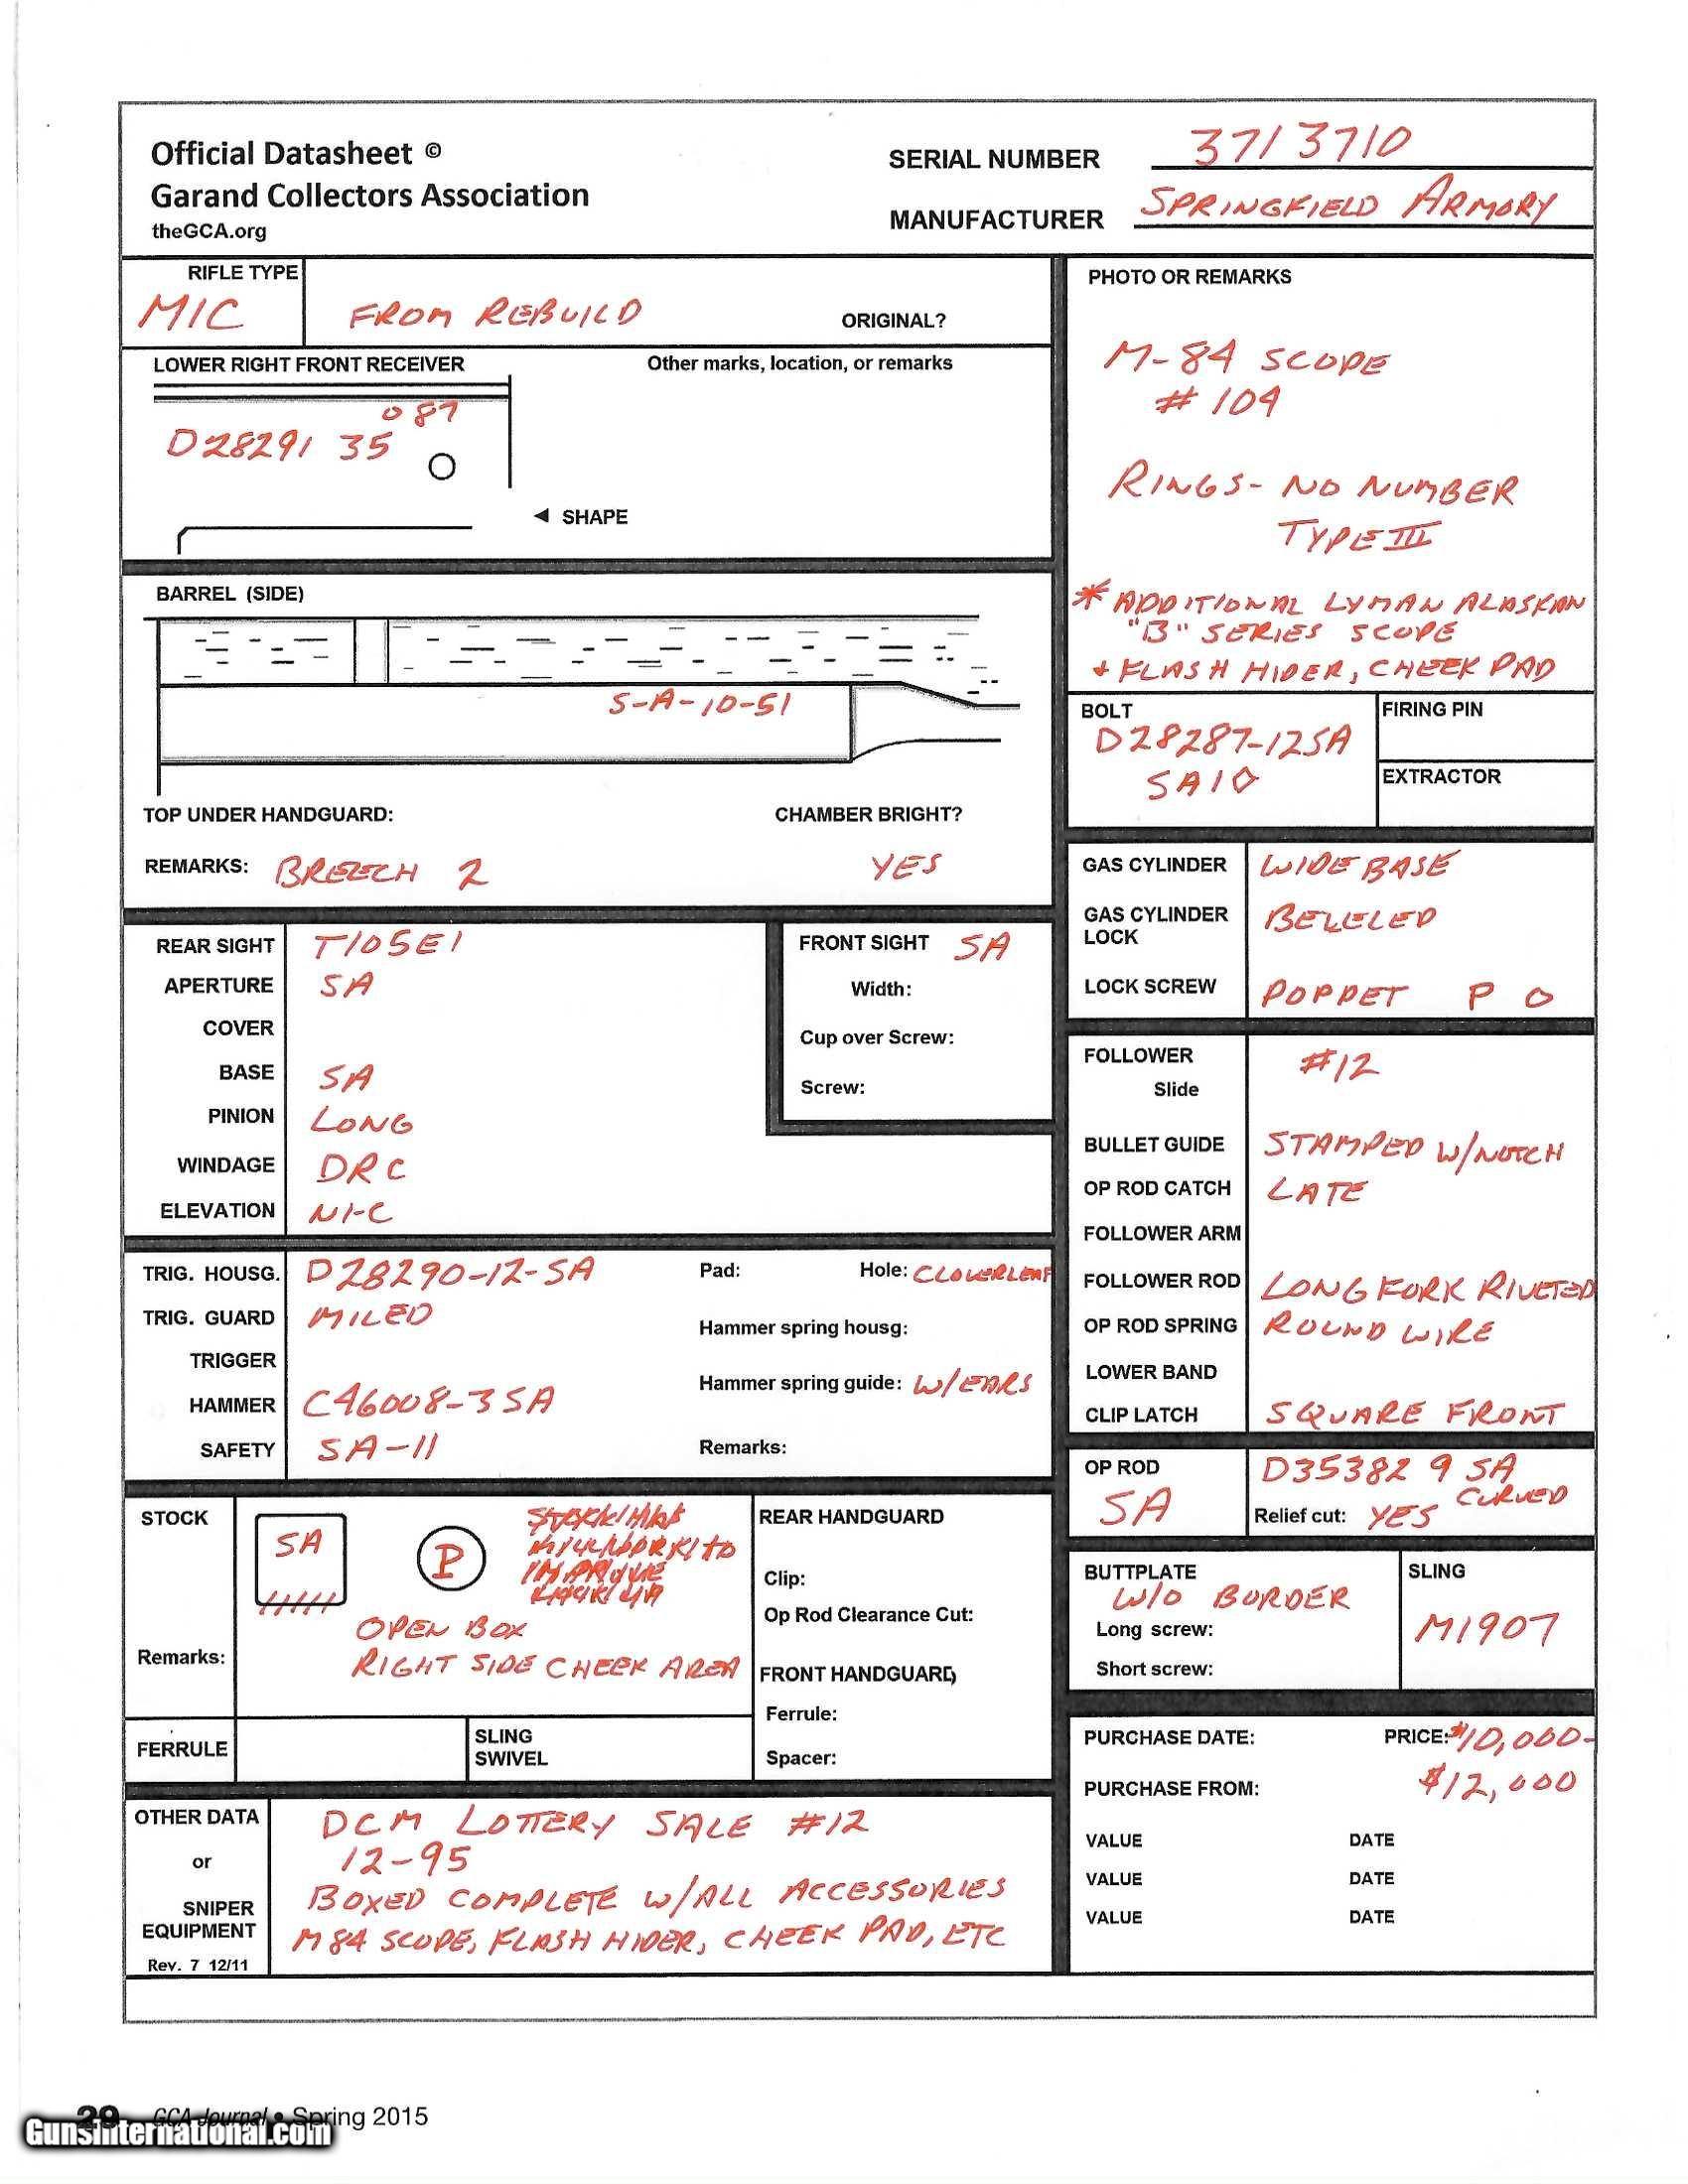 Official Datasheet ©
Garand Collectors Association
theGCA.org
SERIAL NUMBER 3713710
MANUFACTURER SPRINGFIELD ARMORY
RIFLE TYPE
M1C FROM REBUILD ORIGINAL?
LOWER RIGHT FRONT RECEIVER Other marks, location, or remarks
087
D28291 35
◄ SHAPE
PHOTO OR REMARKS
M-84 SCOPE
# 104
RINGS - NO NUMBER
TYPE III
* ADDITIONAL LYMAN ALASKAN
"B" SERIES SCOPE
+ FLASH HIDER, CHEEK PAD
BARREL (SIDE)
S-A-10-51
TOP UNDER HANDGUARD: CHAMBER BRIGHT?
REMARKS: BREECH 2 YES
BOLT
D28287-12SA
SA10
FIRING PIN
EXTRACTOR
GAS CYLINDER WIDE BASE
GAS CYLINDER
LOCK BEVELED
LOCK SCREW POPPET P O
REAR SIGHT T105E1
APERTURE SA
COVER
BASE SA
PINION LONG
WINDAGE DRC
ELEVATION
FRONT SIGHT SA
Width:
Cup over Screw:
Screw:
FOLLOWER #12
Slide
BULLET GUIDE STAMPED W/NOTCH
OP ROD CATCH LATE
FOLLOWER ARM
FOLLOWER ROD LONG FORK RIVETED
OP ROD SPRING ROUND WIRE
LOWER BAND
CLIP LATCH SQUARE FRONT
TRIG. HOUSG. D28290-12-SA Pad: Hole: CLOVERLEAF
TRIG. GUARD MILED
Hammer spring housg:
TRIGGER
Hammer spring guide: W/EARS
HAMMER C46008-3SA
SAFETY SA-11 Remarks:
OP ROD D35382 9 SA
SA CURVED
Relief cut: YES
STOCK
SA
P
OPEN BOX
Remarks: RIGHT SIDE CHEEK AREA
REAR HANDGUARD
Clip:
Op Rod Clearance Cut:
FRONT HANDGUARD
Ferrule:
Spacer:
FERRULE
SLING
SWIVEL
BUTTPLATE
W/O BORDER
Long screw:
Short screw:
SLING
M1907
PURCHASE DATE: PRICE: $10,000-
PURCHASE FROM: $12,000
VALUE DATE
VALUE DATE
VALUE DATE
OTHER DATA
or
SNIPER
EQUIPMENT
Rev. 7 12/11
DCM LOTTERY SALE #12
12-95
BOXED COMPLETE W/ALL ACCESSORIES
M84 SCOPE, FLASH HIDER, CHEEK PAD, ETC
29 GCA Journal • Spring 2015
GunsInternational.com